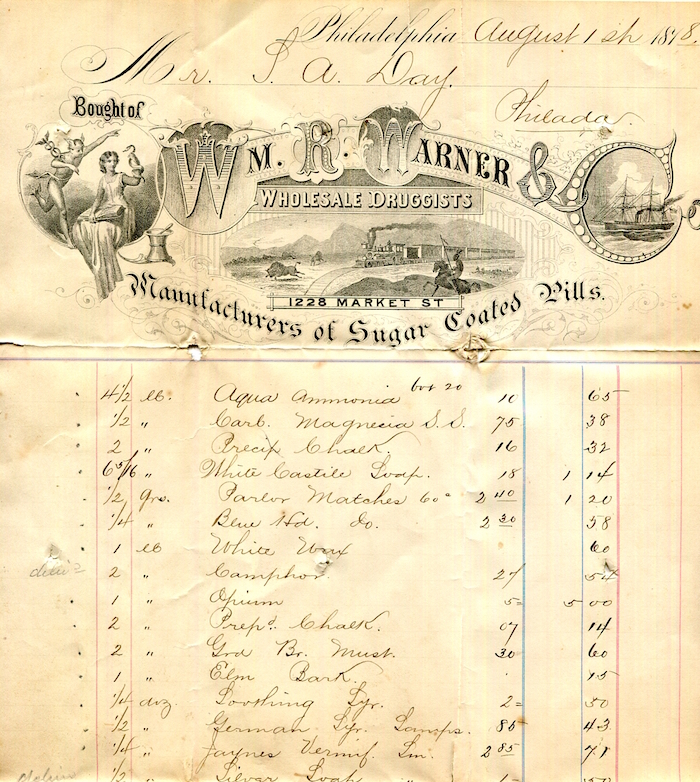 Philadelphia August 1st 1878.
Mr. S. A. Day.
Philada.
Bought of
Wm. R. Warner & Co
Wholesale Druggists
1228 Market St
Manufacturers of Sugar Coated Pills.
4 1/2 lb. Aqua Ammonia bot 20 10 65
1/2 " Carb. Magnecia S.S. 75 38
2 " Precip Chalk. 16 32
6 5/16 " White Castile Soap. 18 1 14
1/2 Grs. Parlor Matches 60s 2 40 1 20
1/4 " Blue Hd. Do. 2 30 58
1 lb White Wax 60
2 " Camphor. 27 54
1 " Opium 5= 5 00
2 " Prepd. Chalk. 07 14
2 " Grd Br. Must. 30 60
1 " Elm Bark. 15
1/4 doz. Soothing Syr. 2= 50
1/2 " German Syr. Samps. 85 43
1/4 " Jaynes Vermif. Sm. 2 85 71
1/2 " Silver Soap